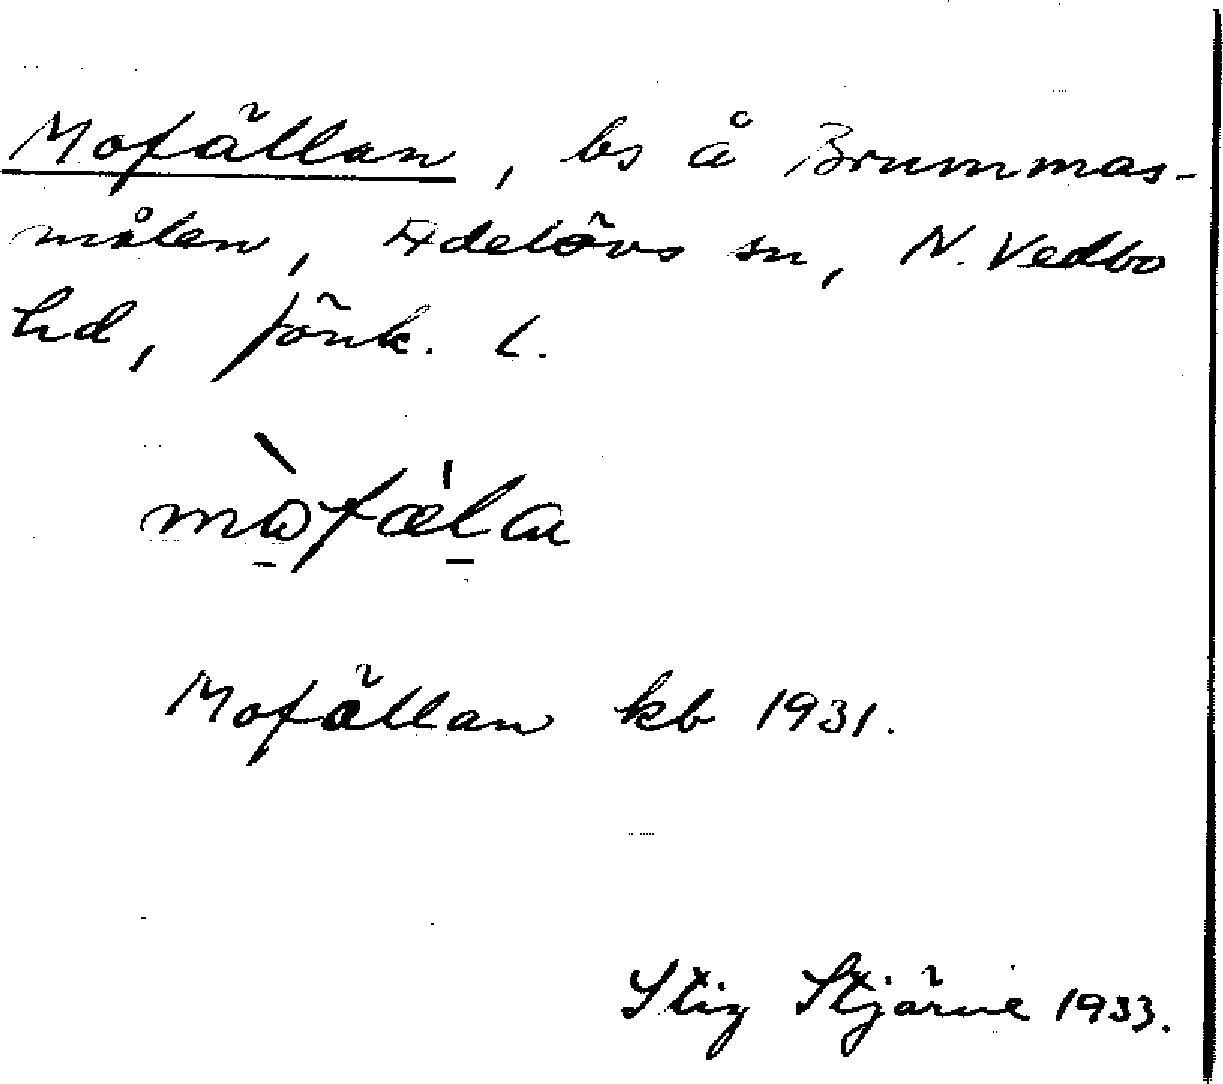 Mofällan, bs å Brummas-
målen, Adelövs sn, N. Vedbo
hd, Jönk. l.
mòfæ̍la
Mofällan kb 1931.
Stig Stjärne 1933.